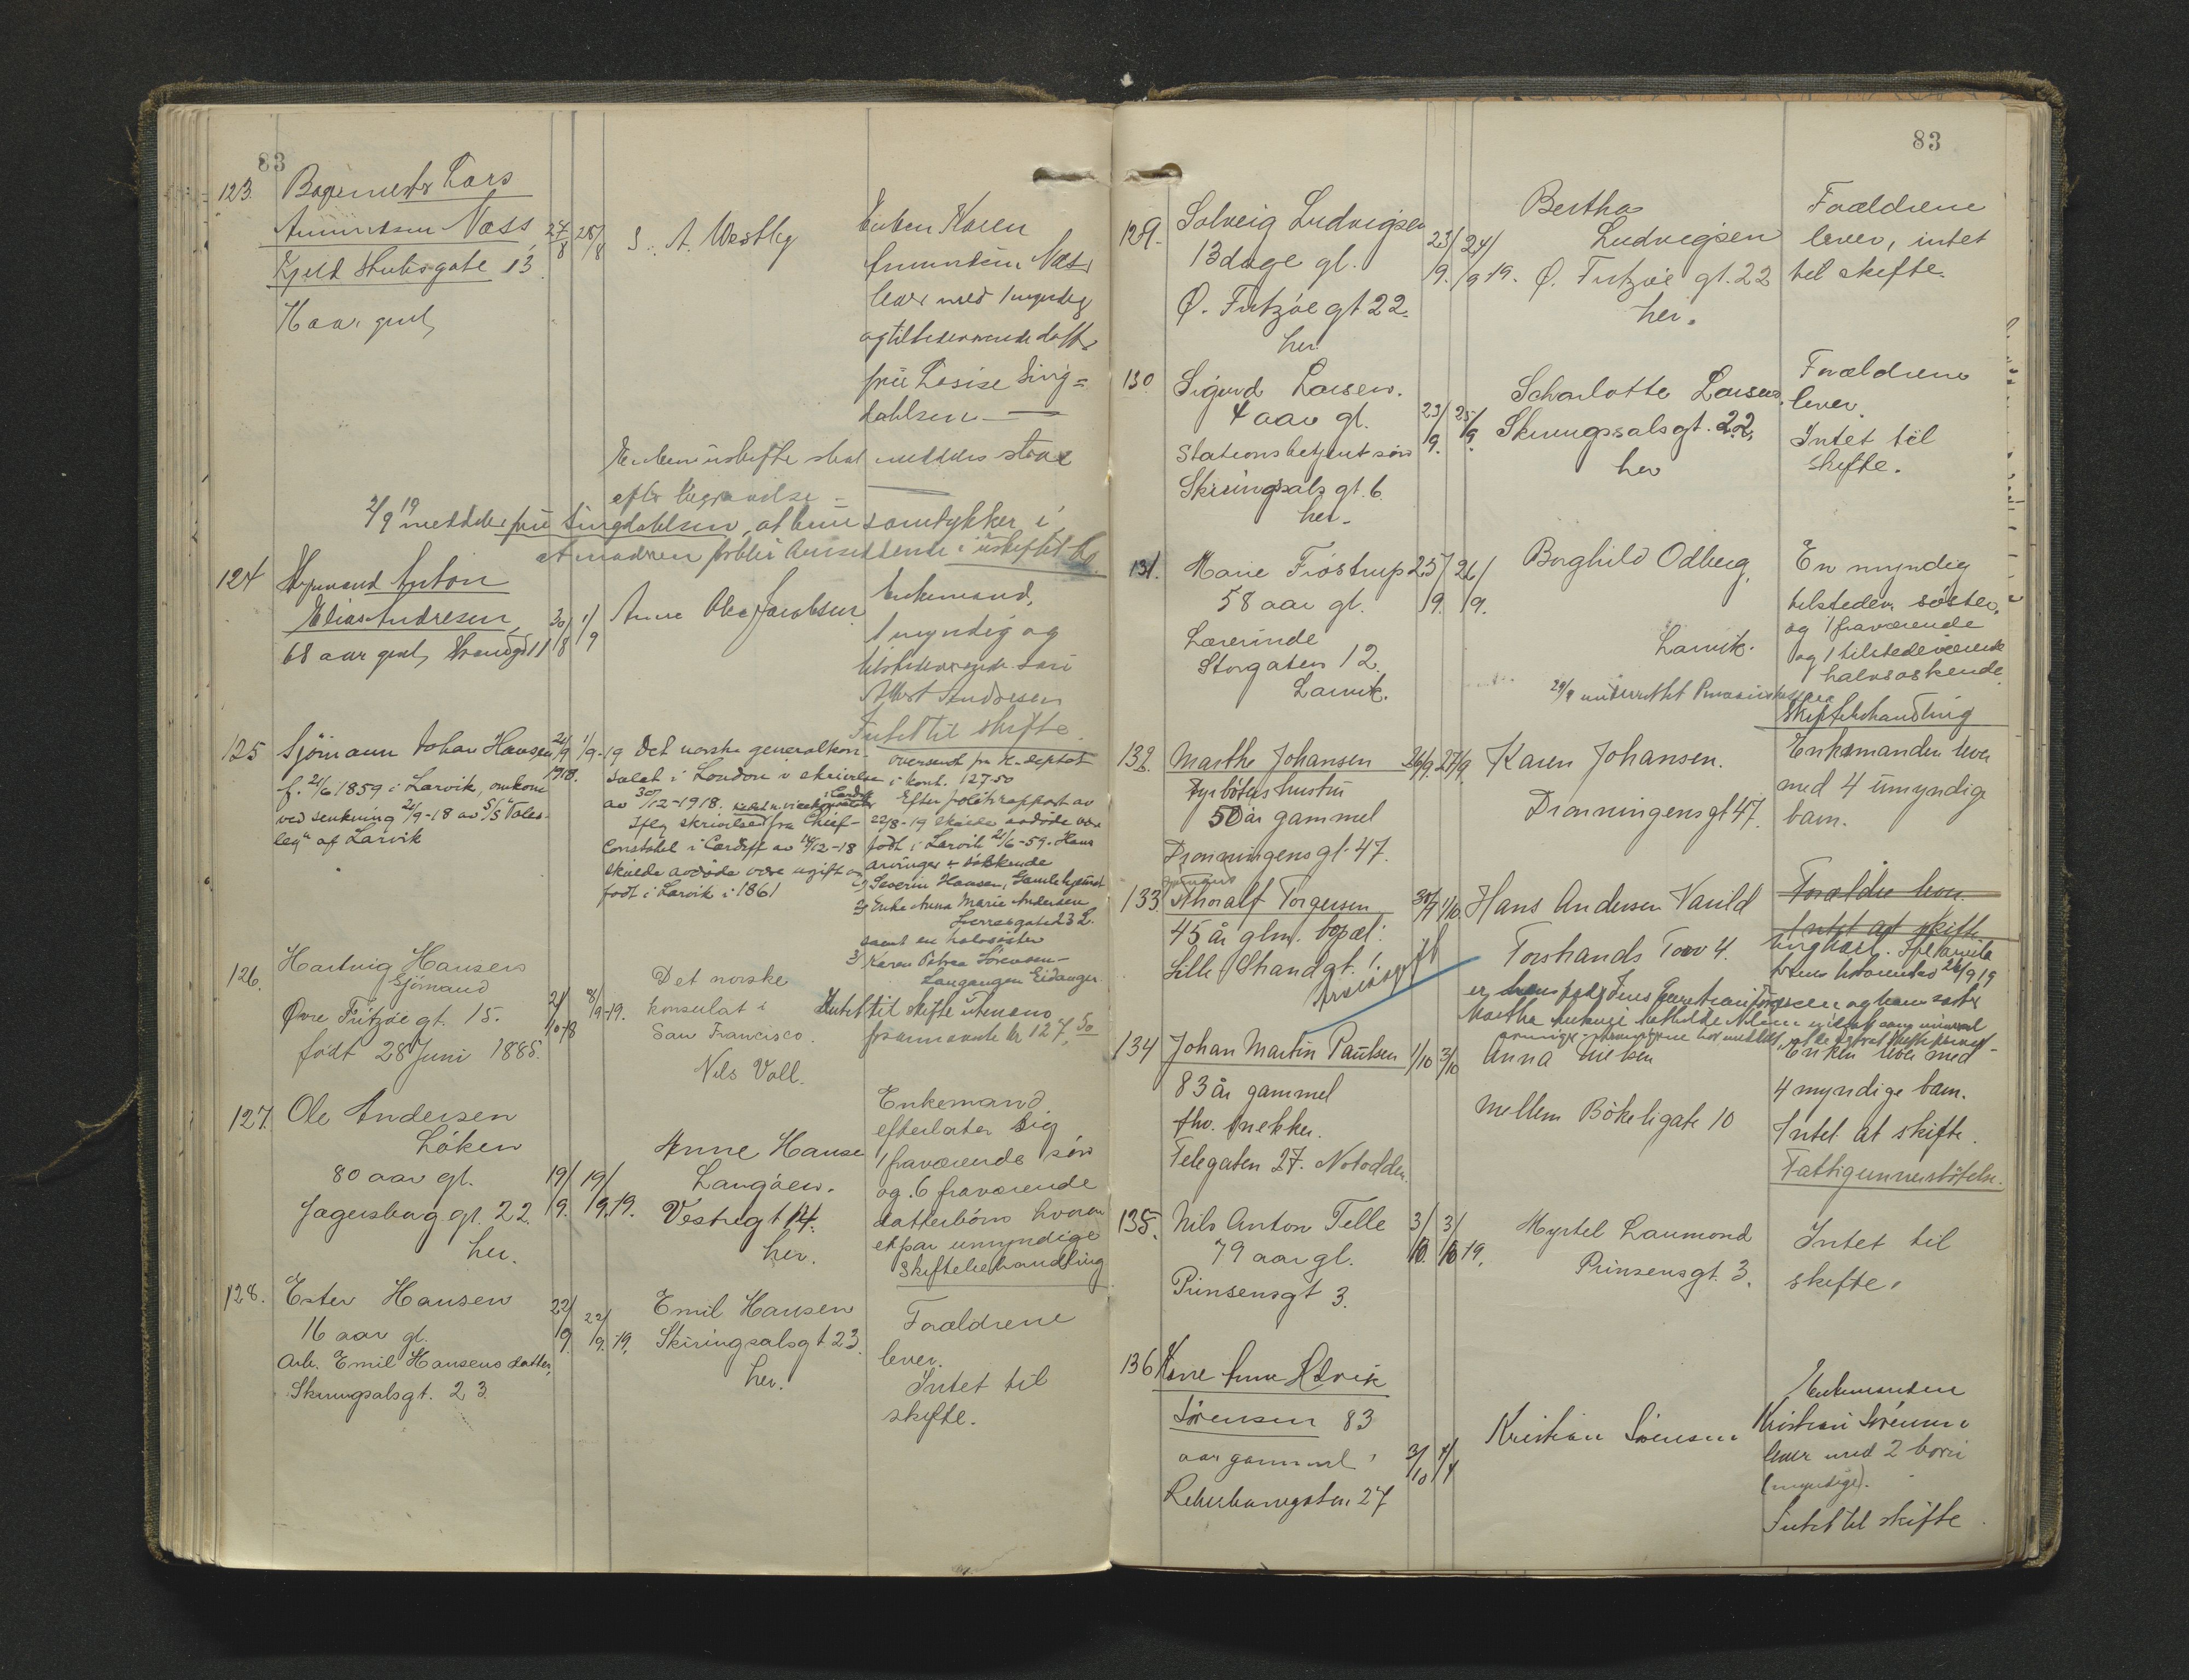 83
123. Bagermester Lars
Amundsen Næss
Kjeld Stubsgate 13
aar gml,
27/8 28/8
S. A. Westby
Enken Karen
Amundsen Næss
lever med 1 myndig
og tilstedeværende datter
frue Lovise Sing=
dahlsen —
Enken i uskifte skal meddeles straks
efter begravelse —
2/9 19 meddeler frue Singdahlsen, at hun samtykker i
at moderen forblir hensittende i uskiftet bo
124 Anton
Elias Andresen
68 aar gml, Strandgd 11
30/8 1/9
Anne Olea Jacobsen
Enkemand,
1 myndig og
tilstedeværende søn
Albert Andresen
Intet til skifte.
125 Sjømann Johan Hansen
f. 21/6 1859 i Larvik, omkom
ved senkning 21/9-18 av D/S "Toles-
ley" af Larvik
21/9 1918. 1/9-19
Det norske generalkon-
sulat i London i skrivelse
av 30/12-1918.
Iflg skrivelse fra Chief-
Constabel i Cardiff av 14/12-18
skulde avdøde være ugift og
født i Larvik i 1861
oversendt fra H-deptet
i kont. 127.50
Efter politirapport av
22/8-19 skulde avdøde være
født i Larvik 21/6-59. Hans
arvinger er søskende
1) Severin Hansen, Gamle
2) Enke Anna Marie Andersen
23 L.
samt en halvsøster
3) Karen Petrea Sørensen —
Langangen Eidanger.
Intet til skifte
kr 127,50
126. Hartvig Hansen
Sjømand
Øvre Fritzøe gt. 15.
født 28 Juni 1885.
2/10-18 8/9-19.
Det norske
konsulat i
San Francisco.
Nils Voll.
127. Ole Andersen
Løken
80 aar gl.
Jagersborg gt. 22.
her.
19/9. 19/9.19.
Anne Hanse
Langøen.
Vestregt 14.
her.
Enkemand
efterlater sig
1 fraværende søn
og 6 fraværende
datterbørn hvorav
et par umyndige
Skiftebehandling
128. Ester Hansen
16 aar gl.
Arb. Emil Hansens datter,
Skiringsalsgt. 23.
22/9 22/9.-19.
Emil Hansen
Skiringsalsgt 23.
her.
Forældrene
lever.
Intet til
skifte.
83
129. Solveig Ludvigsen
13 dage gl.
Ø. Fritzøe gt 22.
her.
23/9. 24/9-19.
Bertha
Ludvigsen
Ø. Fritzøe gt. 22
her.
Forældrene
lever, intet
til skifte.
130 Sigurd Larsen.
4 aar gl.
Stationsbetjent søn
Skiringsals gt. 6.
her.
23/9. 25/9.
Scharlotte Larsen.
Skiringssalsgt. 22.
her
Forældrene
lever.
Intet til
skifte.
131. Marie Frøstrup
58 aar gl.
Lærerinde
Storgaten 12.
Larvik.
25/9. 26/9.
Borghild Odberg,
Larvik.
En myndig
tilstedev. søster,
og 1 fraværende
og 1 tilstedeværende
halvsøskende.
29/9 underrettet
Skiftebehandling
132. Marthe Johansen
Fyrbøters hustru
50 år gammel
Dronningens gt. 47.
26/9. 27/9.
Karen Johansen.
Dronningens gt 47.
Enkemanden lever
med 4 umyndige
barn.
133. Thoralf Torgersen
45 år glm. bopæl:
Lille Strandgt. 1.
30/9 1/10.
Hans Andersen Varild
Torstrands Torv 4.
Forældre lever.
Intet at skifte
134 Johan Martin Paulsen
83 år gammel
fhv. snekker.
Telegaten 27. Notodden.
1/10 3/10
Anna Nielsen
Mellem Bøkeligate 10
Enken lever med
4 myndige barn.
Intet at skifte.
Fattigunderstøttelse.
135. Nils Anton Telle
79 aar gl.
Prinsensgt 3.
3/10. 3/10 19.
Myrtel Laumond
Prinsensgt. 3.
Intet til
skifte.
136
Sørensen 83
aar gammel
Reberbanegaten 27
3/10 4/4
Kristian Sørensen
Enkemanden
Kristian Sørensen
lever med 2 børn
(myndige).
Intet til skifte.